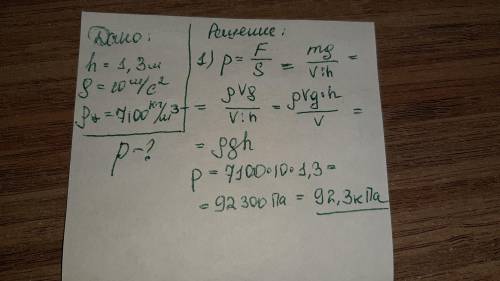 Дано:
h = 1,3м
g = 10 м/с²
ρ* = 7100 кг/м³
p - ?
Решение:
1) p = F/S = mg/V:h =
= ρVg/V:h = ρVg·h/V =
= ρgh
p = 7100·10·1,3 =
= 92300 Па = 92,3 кПа